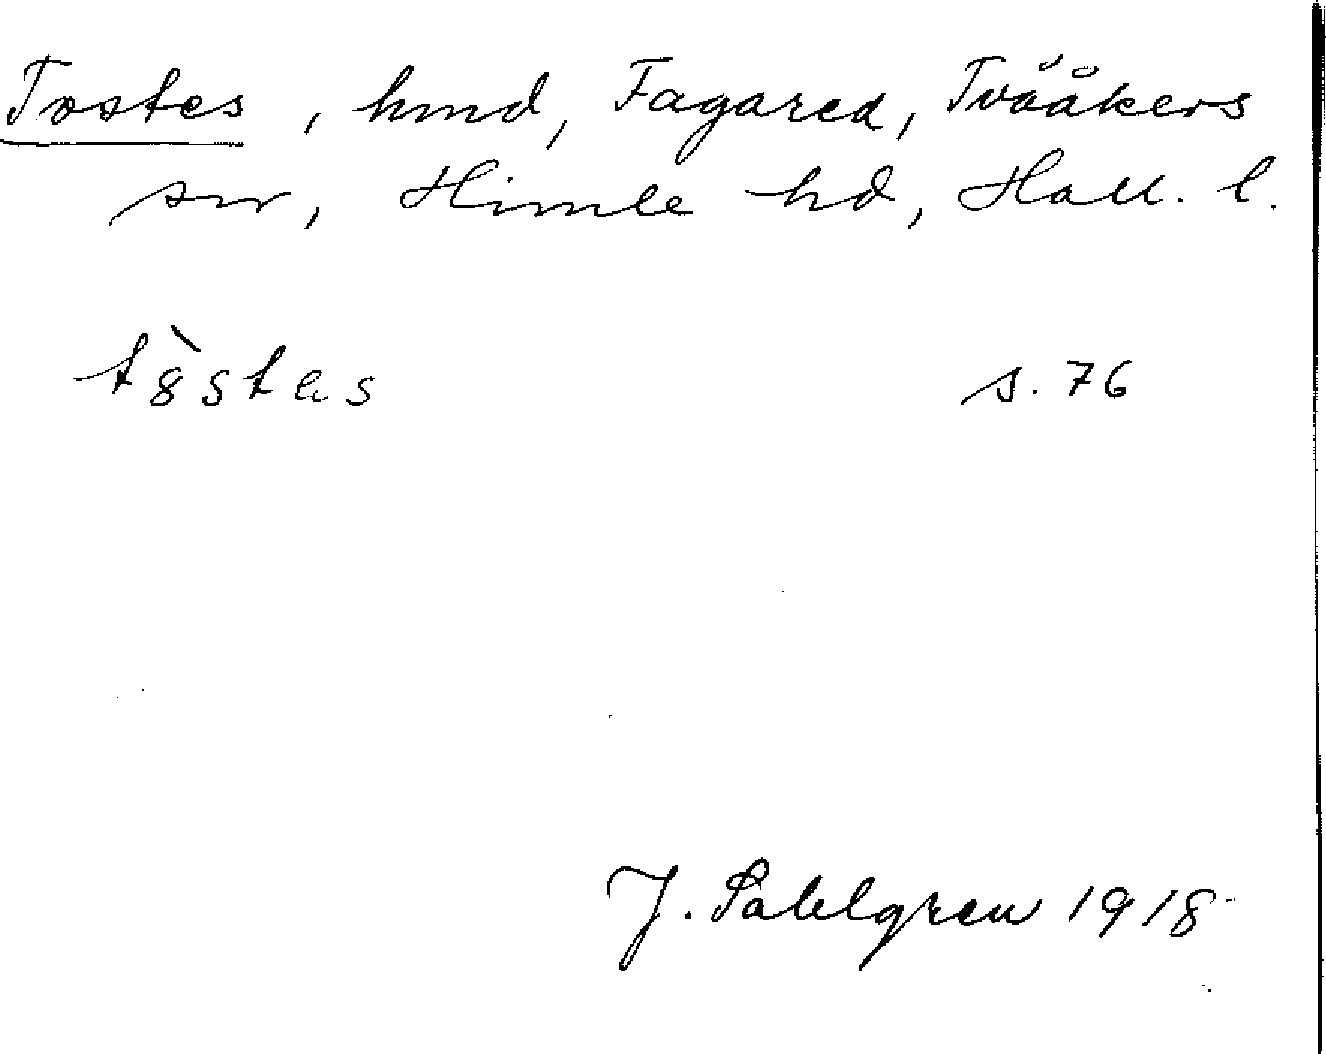 Tostes, hmd, Fagared, Tvååkers
sn, Himle hd, Hall. l.
s. 76
J. Sahlgren 1918